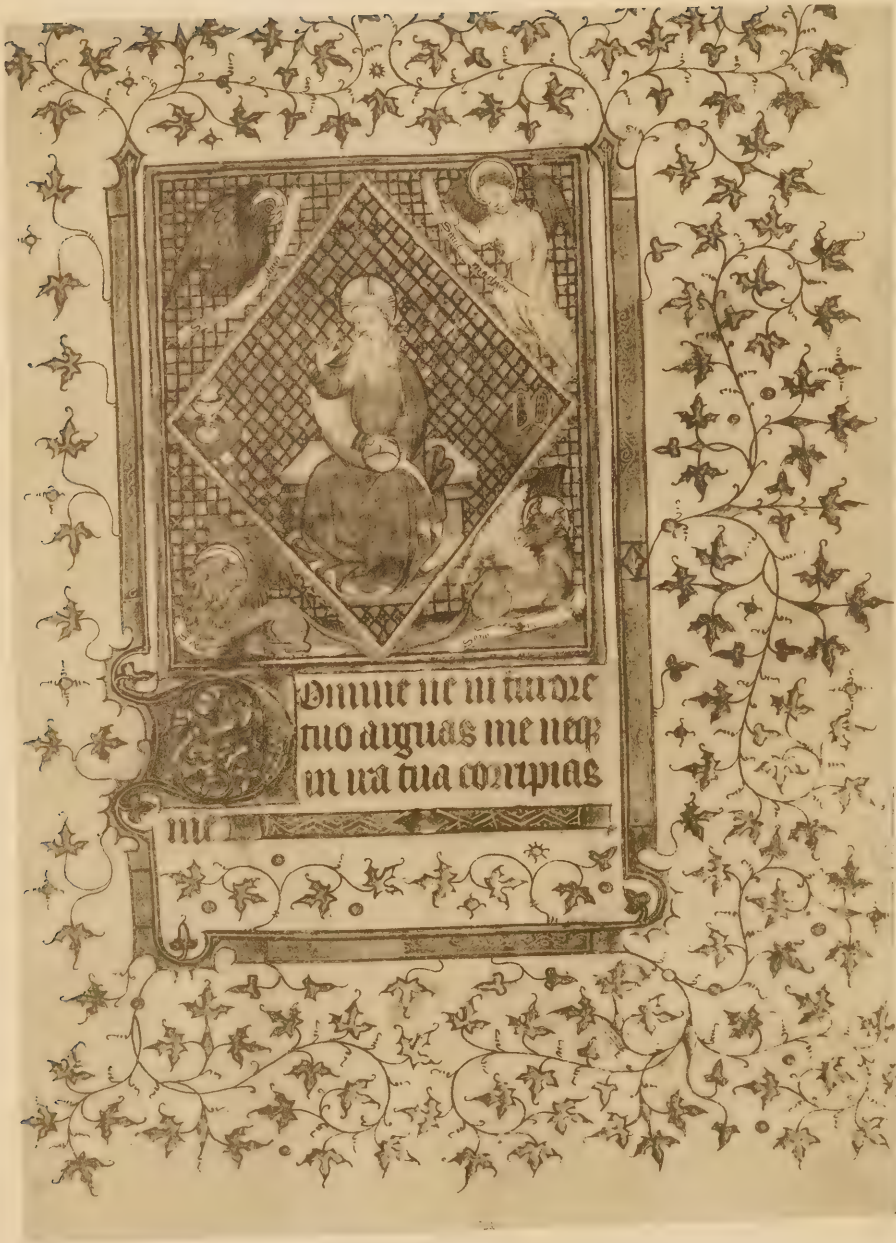 Domine ne in furore
tuo arguas me neqꝫ
in ira tua corripias
me